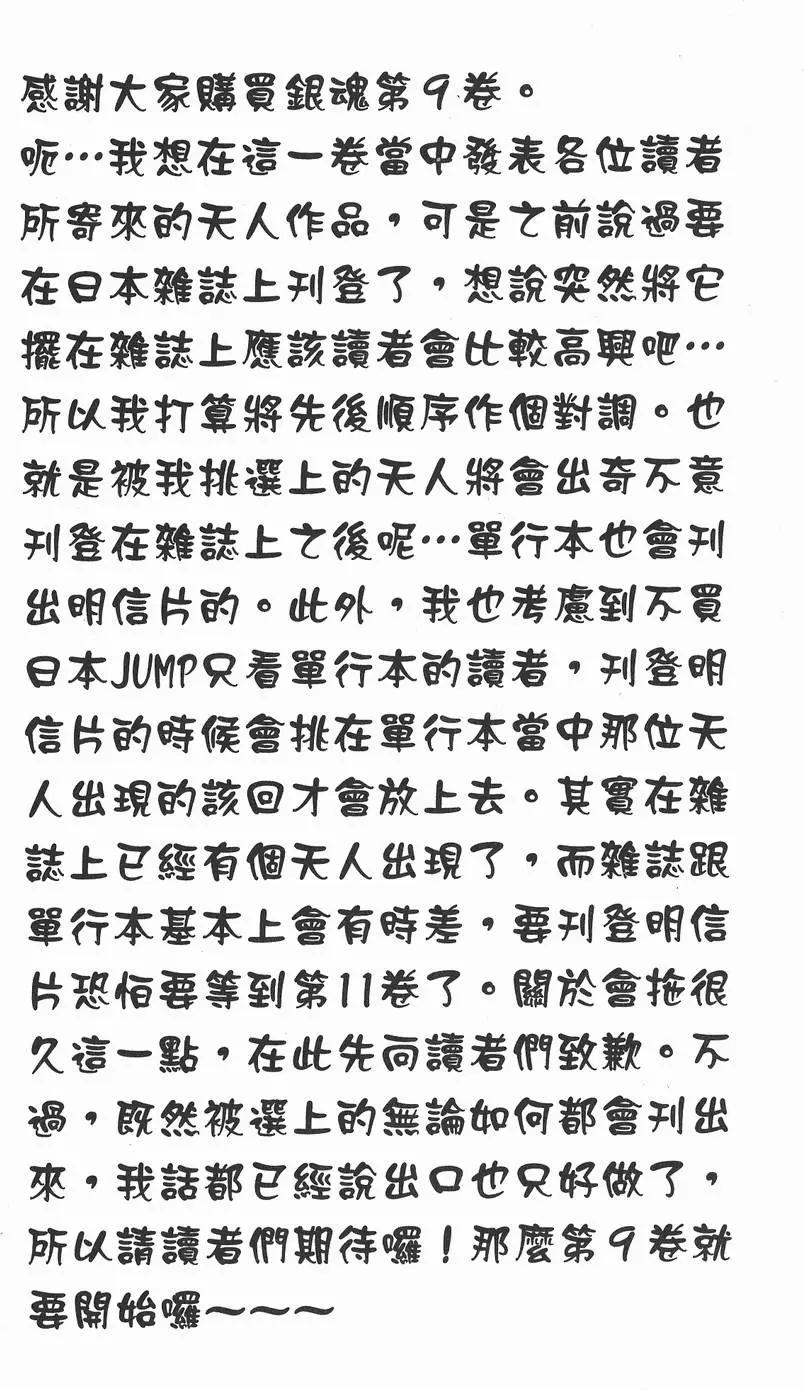 感謝大家購買銀魂第9卷。
呃…我想在這一卷當中發表各位讀者
所寄來的天人作品，可是之前說過要
在日本雜誌上刊登了，想說突然將它
擺在雜誌上應該讀者會比較高興吧…
所以我打算將先後順序作個對調。也
就是被我挑選上的天人將會出奇不意
刊登在雜誌上之後呢…單行本也會刊
出明信片的。此外，我也考慮到不買
日本JUMP只看單行本的讀者，刊登明
信片的時候會挑在單行本當中那位天
人出現的該回才會放上去。其實在雜
誌上已經有個天人出現了，而雜誌跟
單行本基本上會有時差，要刊登明信
片恐怕要等到第11卷了。關於會拖很
久這一點，在此先向讀者們致歉。不
過，既然被選上的無論如何都會刊出
來，我話都已經說出口也只好做了，
所以請讀者們期待囉！那麼第9卷就
要開始囉～～～